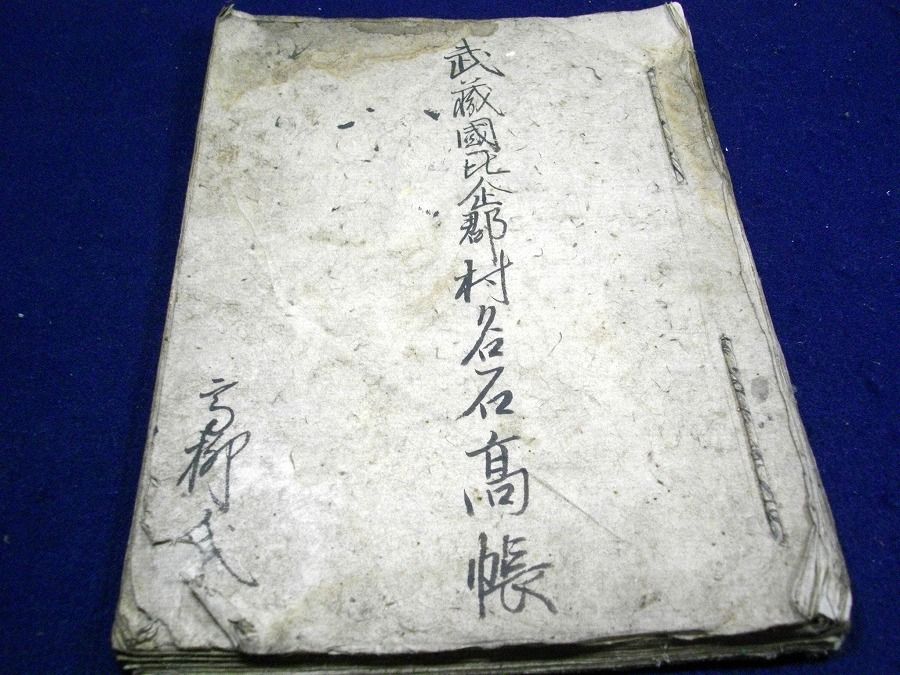 武蔵國比企郡村名石高帳
高柳氏